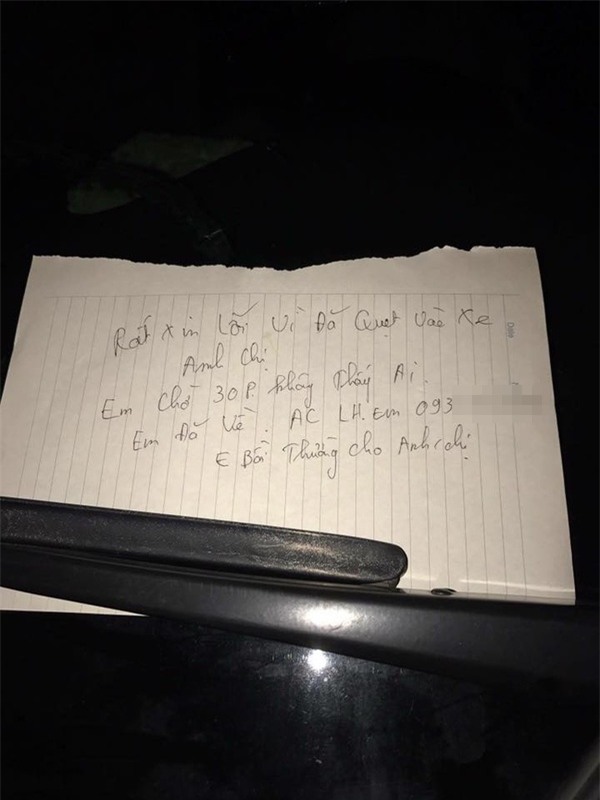 Rất xin Lỗi Vì Đã Quẹt Vào Xe
Anh Chị
Em Chờ 30P. không thấy Ai.
Em Đã Về. AC LH. Em 093
E Bồi Thường cho Anh chị
Date